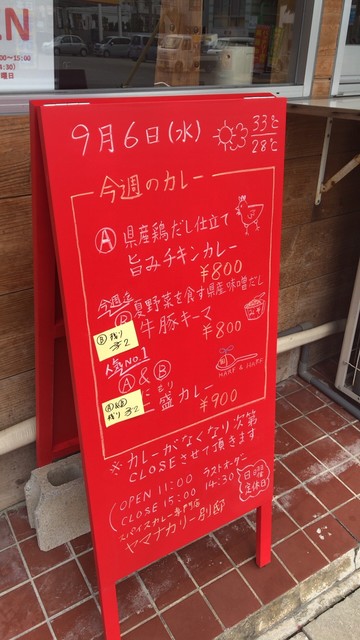 EN
9月6日(水) 33℃
28℃
今週のカレー
Ⓐ 県産鶏だし仕立て
旨みチキンカレー
¥800
今週は
Ⓑ 夏野菜を食す県産味噌だし
牛豚キーマ
¥800
Ⓑ残り
人気NO.1
Ⓐ & Ⓑ
HALF & HALF
二色盛カレー
¥900
Ⓐ&Ⓑ
残り
※カレーがなくなり次第
CLOSEさせて頂きます
OPEN 11:00 ラストオーダー
CLOSE 15:00 14:30
日曜
定休日
スパイスカレー専門店
ヤマナカリー別邸